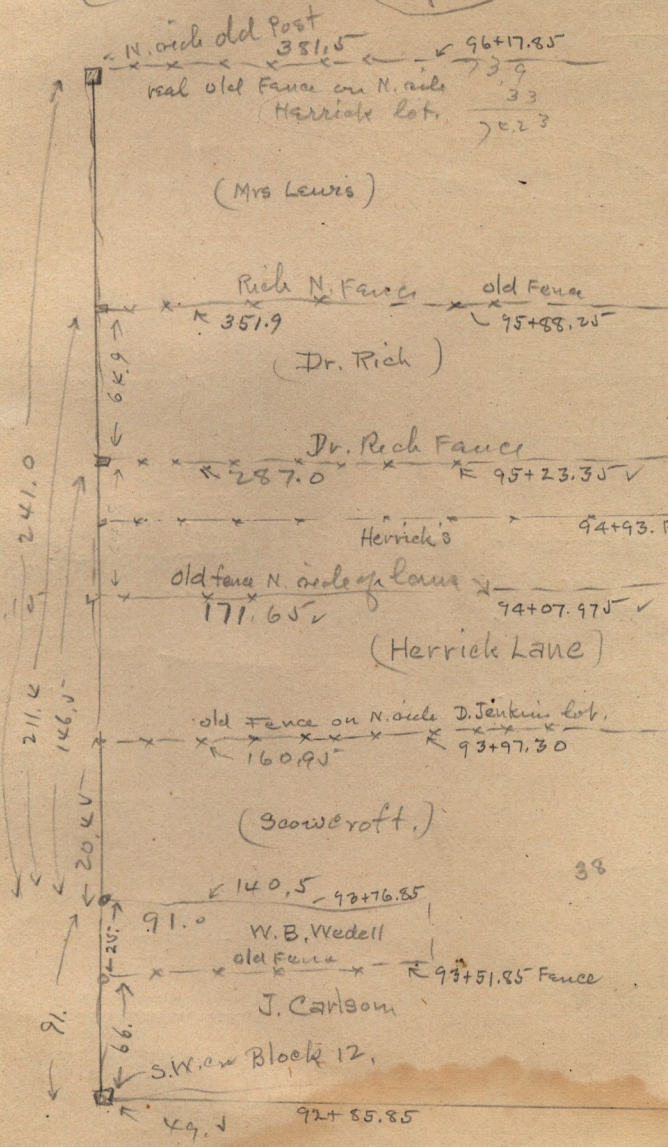 N. side old Post
381.5
96+17.85
real old Fence on N. side
Herrick lot.
73 9
33
74.23
(Mrs Lewis)
Rich N. Fence old Fence
351.9
95+88.25
(Dr. Rich)
64.9
Dr. Rich Fence
287.0
95+23.35 ✓
Herrick's
94+93.
Old fence N. side of lane
171.65 ✓
94+07.975 ✓
(Herrick Lane)
241.0
211.4
146.5
old Fence on N. side D. Jenkins lot.
160.95
93+97.30
(Scowcroft.)
20.45
38
140.5
93+76.85
91.0
W.B. Wedell
25.
old Fence
93+51.85 Fence
J. Carlsom
91.
66.
S.W. cor Block 12.
49.5
92+85.85